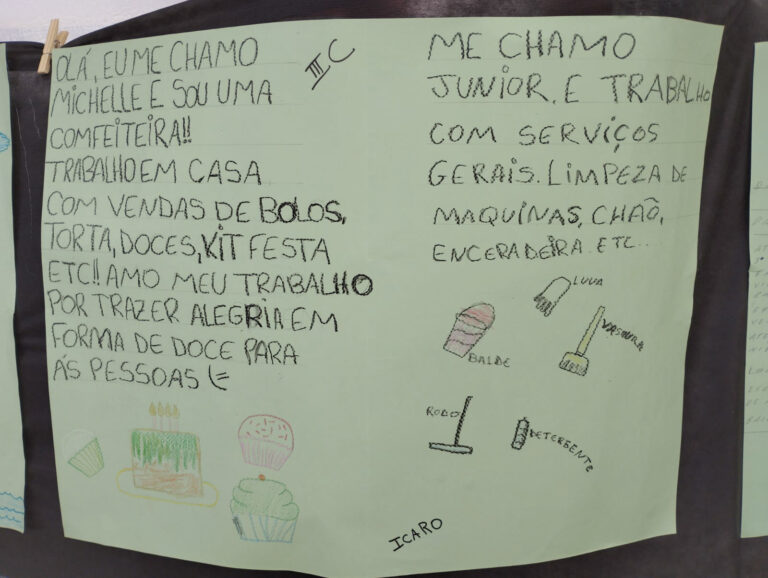 OLÁ, EU ME CHAMO
MICHELLE E SOU UMA
COMFEITEIRA!!
TRABALHO EM CASA
COM VENDAS DE BOLOS,
TORTA, DOCES, KIT FESTA
ETC!! AMO MEU TRABALHO
POR TRAZER ALEGRIA EM
FORMA DE DOCE PARA
ÁS PESSOAS (=
III C
ME CHAMO
JUNIOR. E TRABALHO
COM SERVIÇOS
GERAIS. LIMPEZA DE
MAQUINAS, CHÃO,
ENCERADEIRA. ETC...
LUVA
BALDE
VASSOURA
RODO
DETERGENTE
ICARO